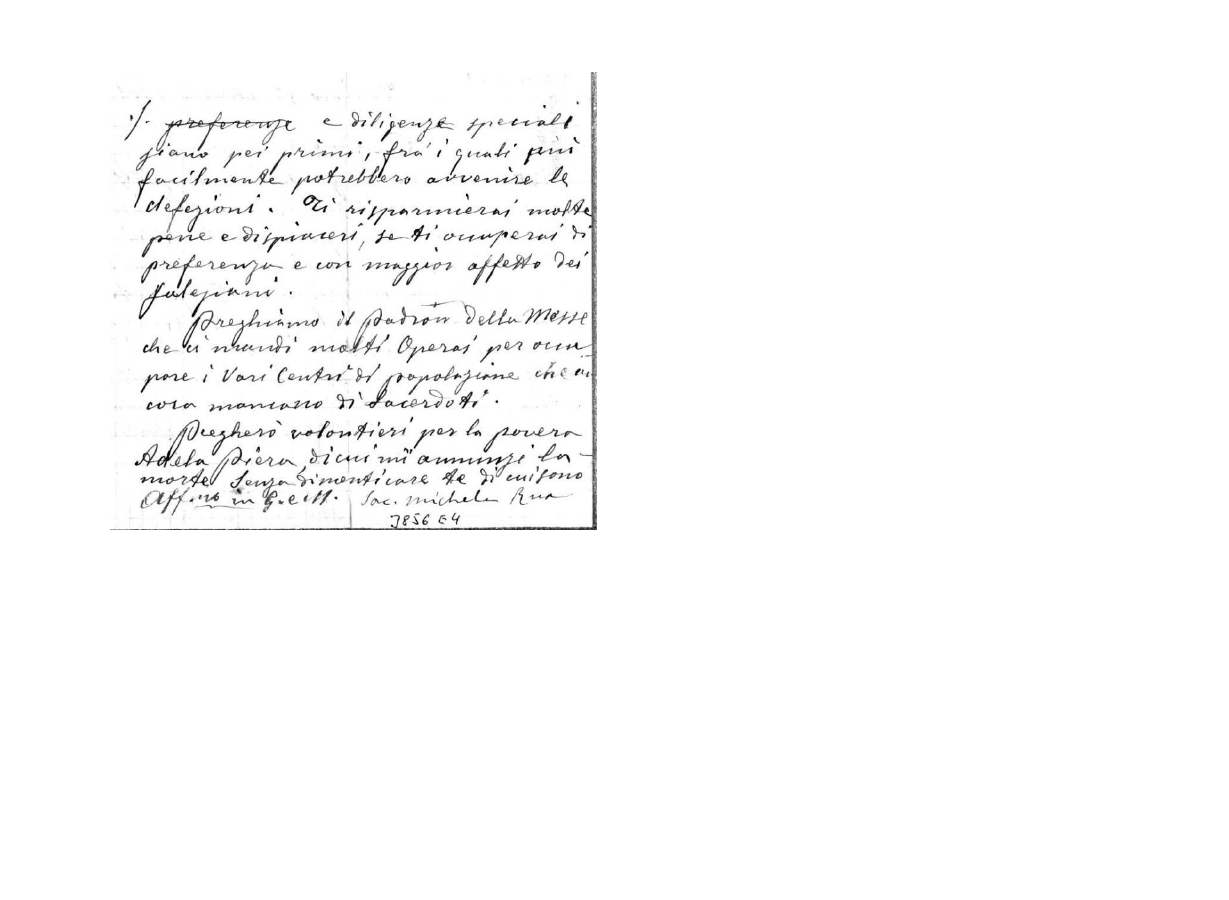 ./. preferenze e diligenze speciali
siano pei primi, fra i quali più
facilmente potrebbero avvenire le
defezioni. Ti risparmierai molte
pene e dispiaceri, se ti occuperai di
preferenza e con maggior affetto dei
Salesiani.
Preghiamo il Padron della Messe
che ci mandi molti Operai per occu
pare i Vari Centri di popolazione che an
cora mancano di Sacerdoti.
Pregherò volontieri per la povera
Adela Piera, di cui mi annunzi la
morte senza dimenticare te di cui sono
Aff.mo in G. e M. Sac. Michele Rua
3856 E4